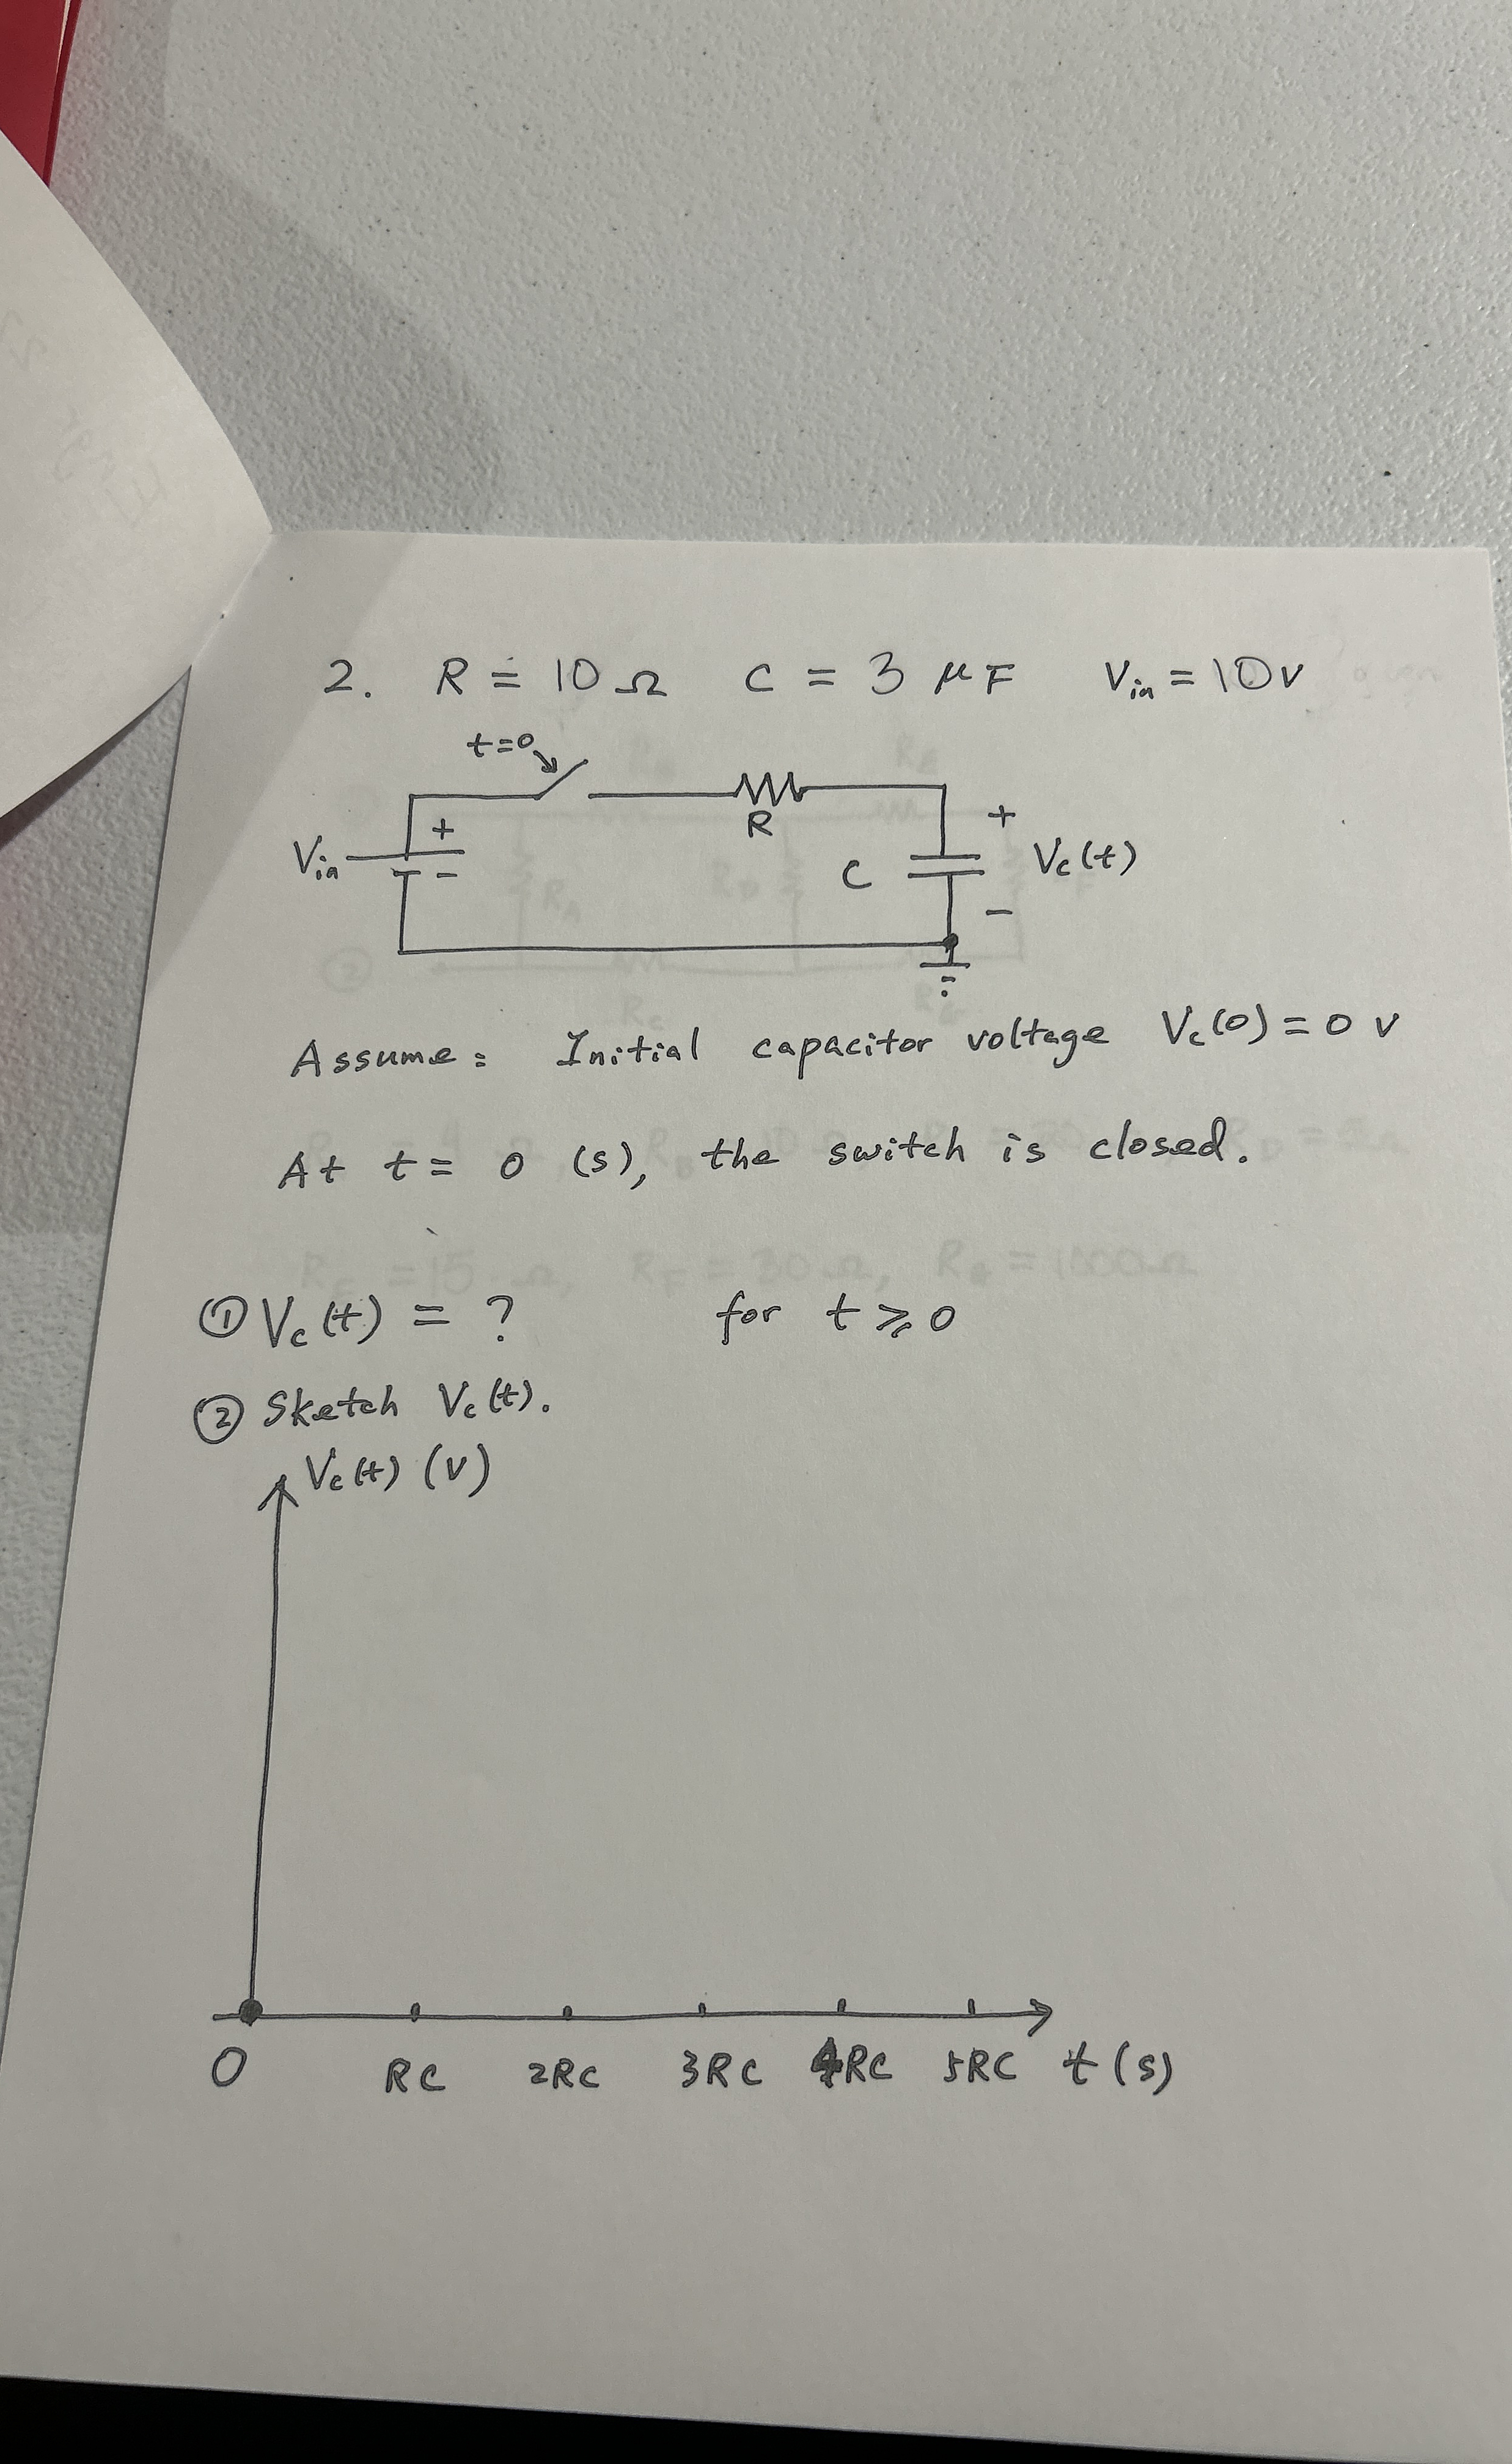 2. R = 10 Ω C = 3 μF Vin = 10v
t=0
+
R
+
Vin
-
C
Vc(t)
-
Assume: Initial capacitor voltage Vc(0) = 0 v
At t = 0 (s), the switch is closed.
RF = 30Ω,
① Vc(t) = ? for t ⩾ 0
② Sketch Vc(t).
Vc(t) (v)
0 RC 2RC 3RC 4RC 5RC t(s)